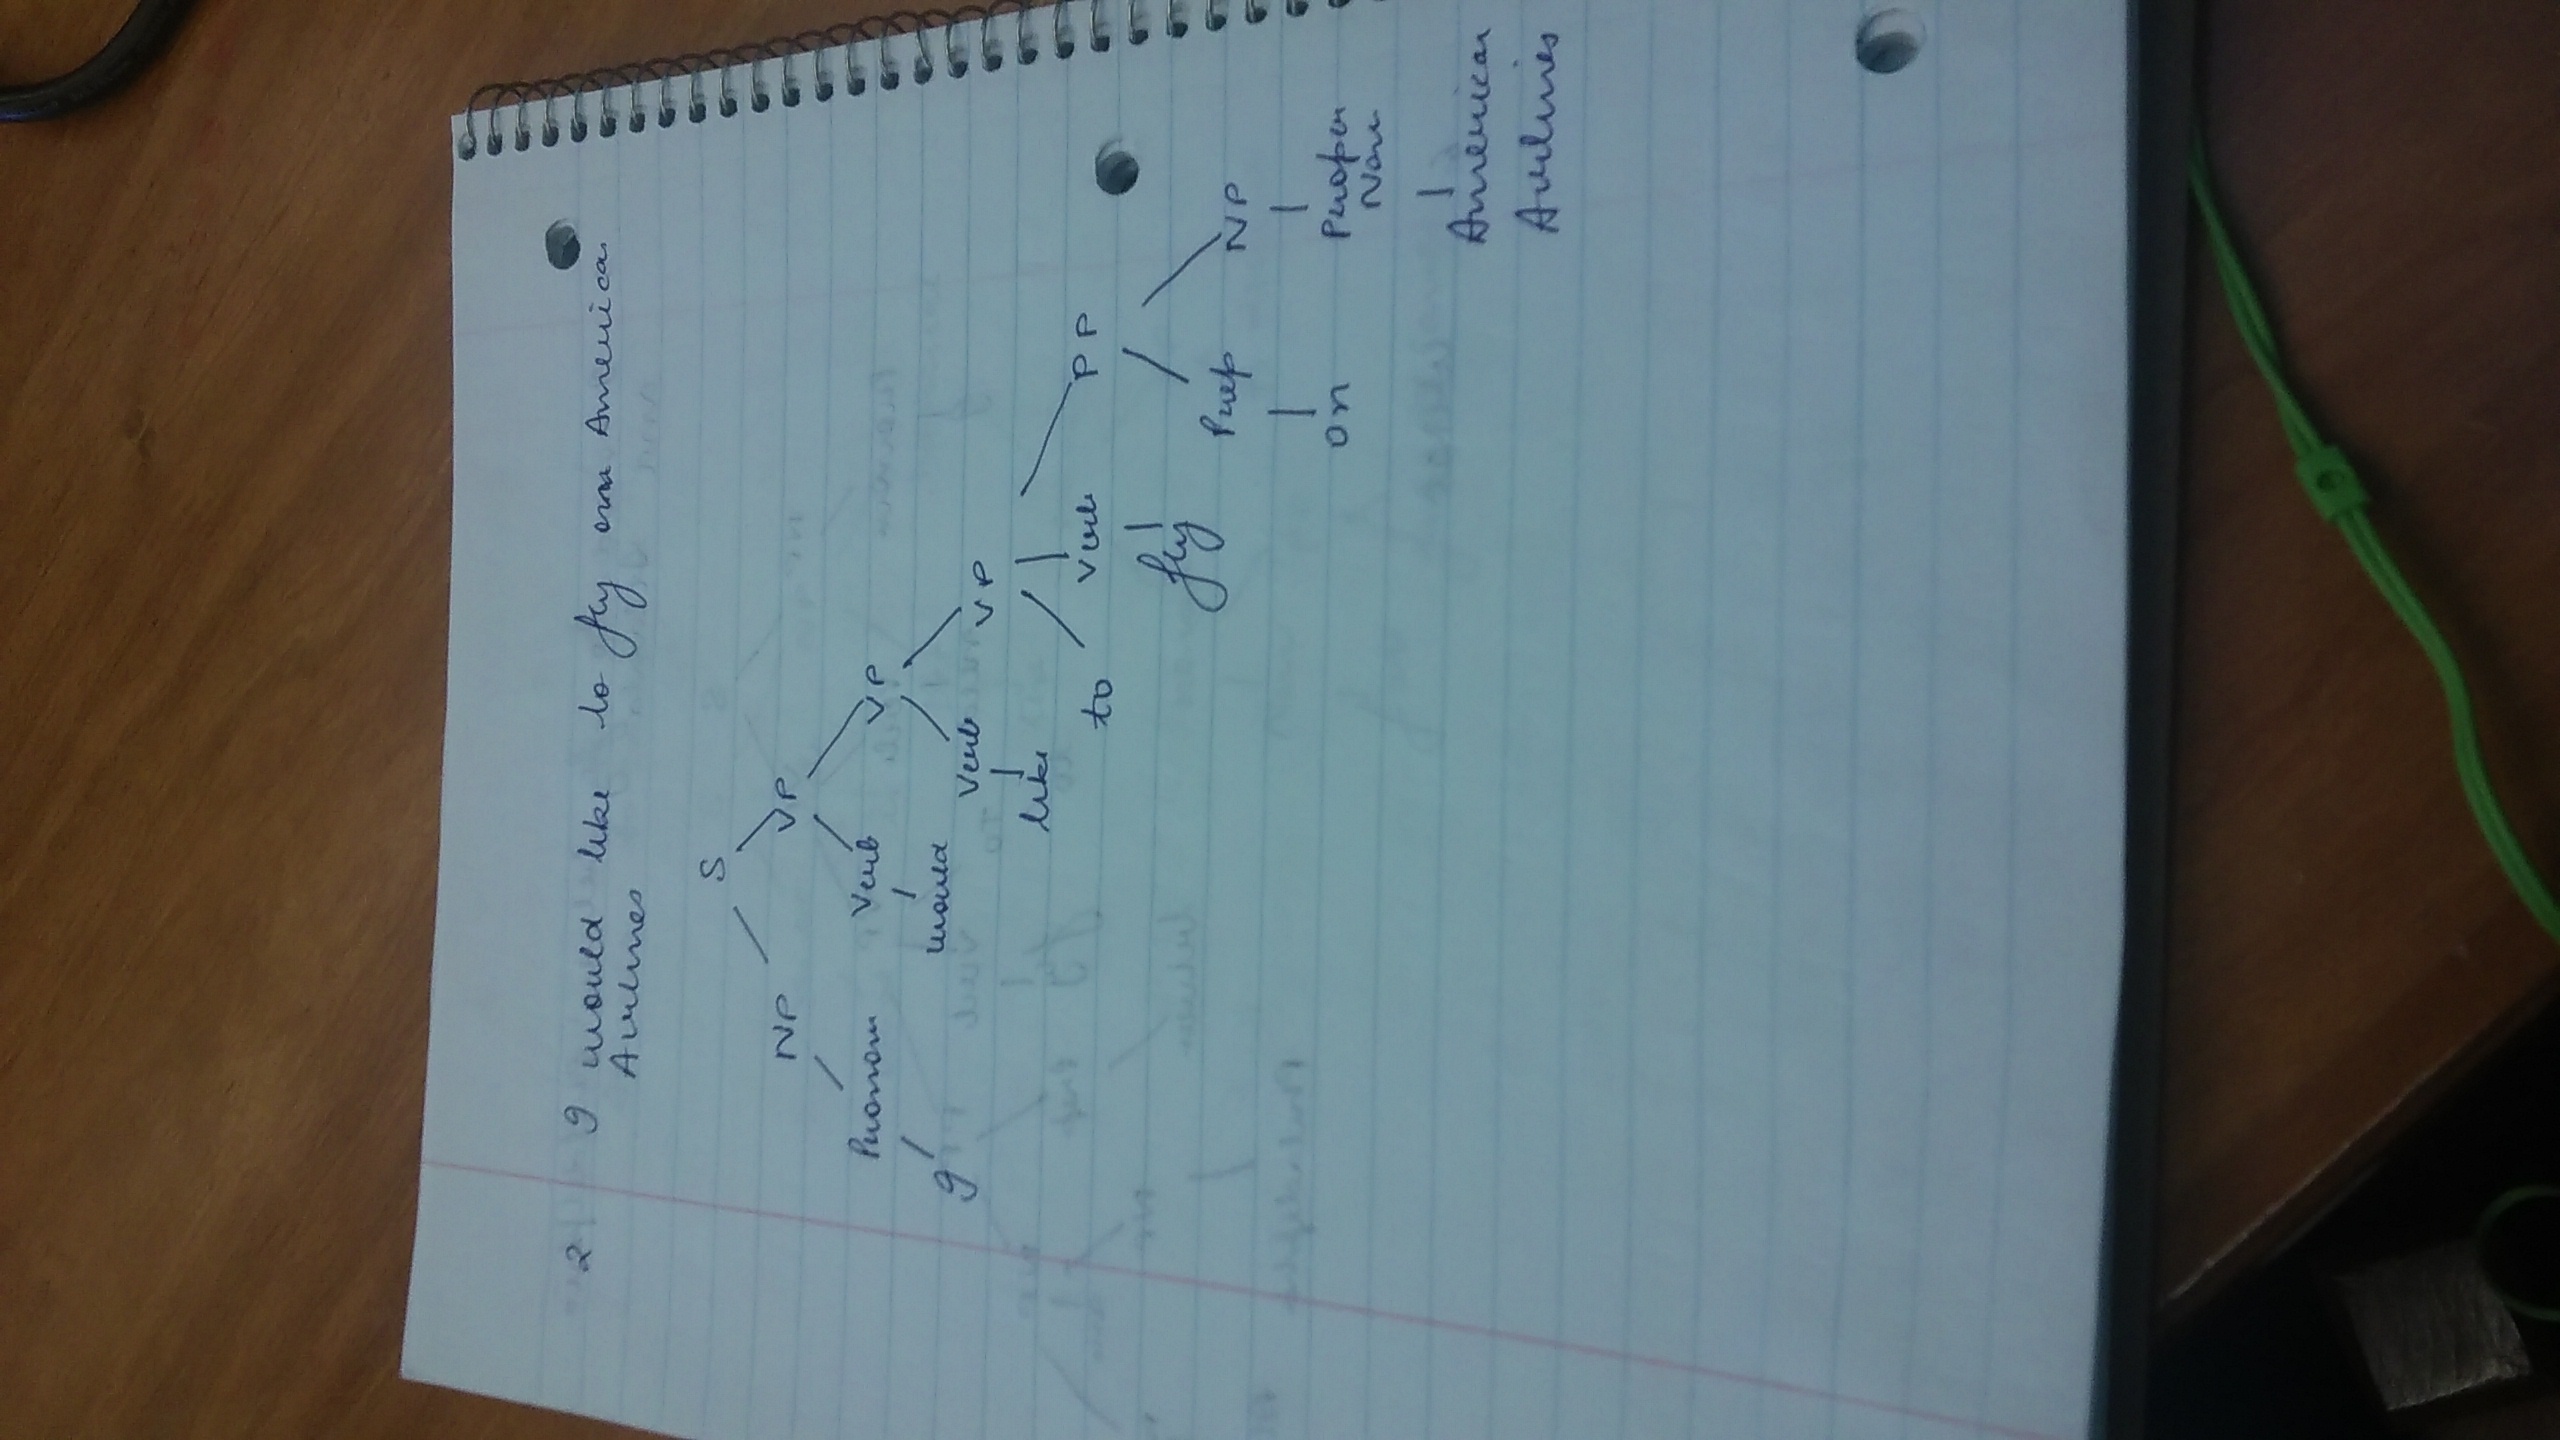 2 I would like to fly on American
Airlines
S
NP VP
Pronoun Verb VP
I would
Verb VP
like
to Verb PP
fly
Prep NP
on Proper
Noun
American
Airlines